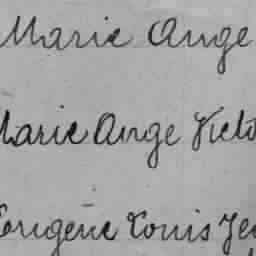 Marie Ange
Marie Ange Victo
Eugène Louis Je